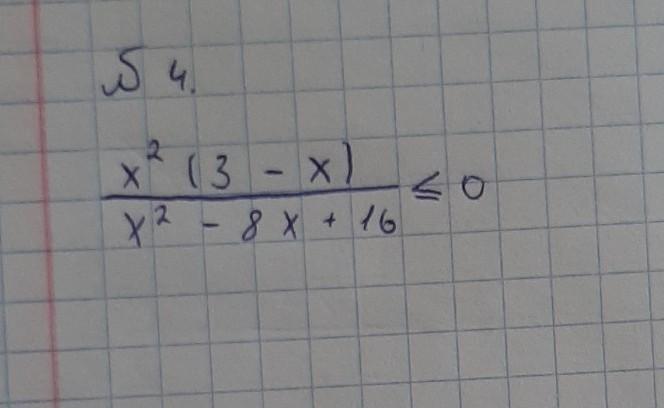 № 4.
x² (3 - x)
x² - 8x + 16 ≤ 0